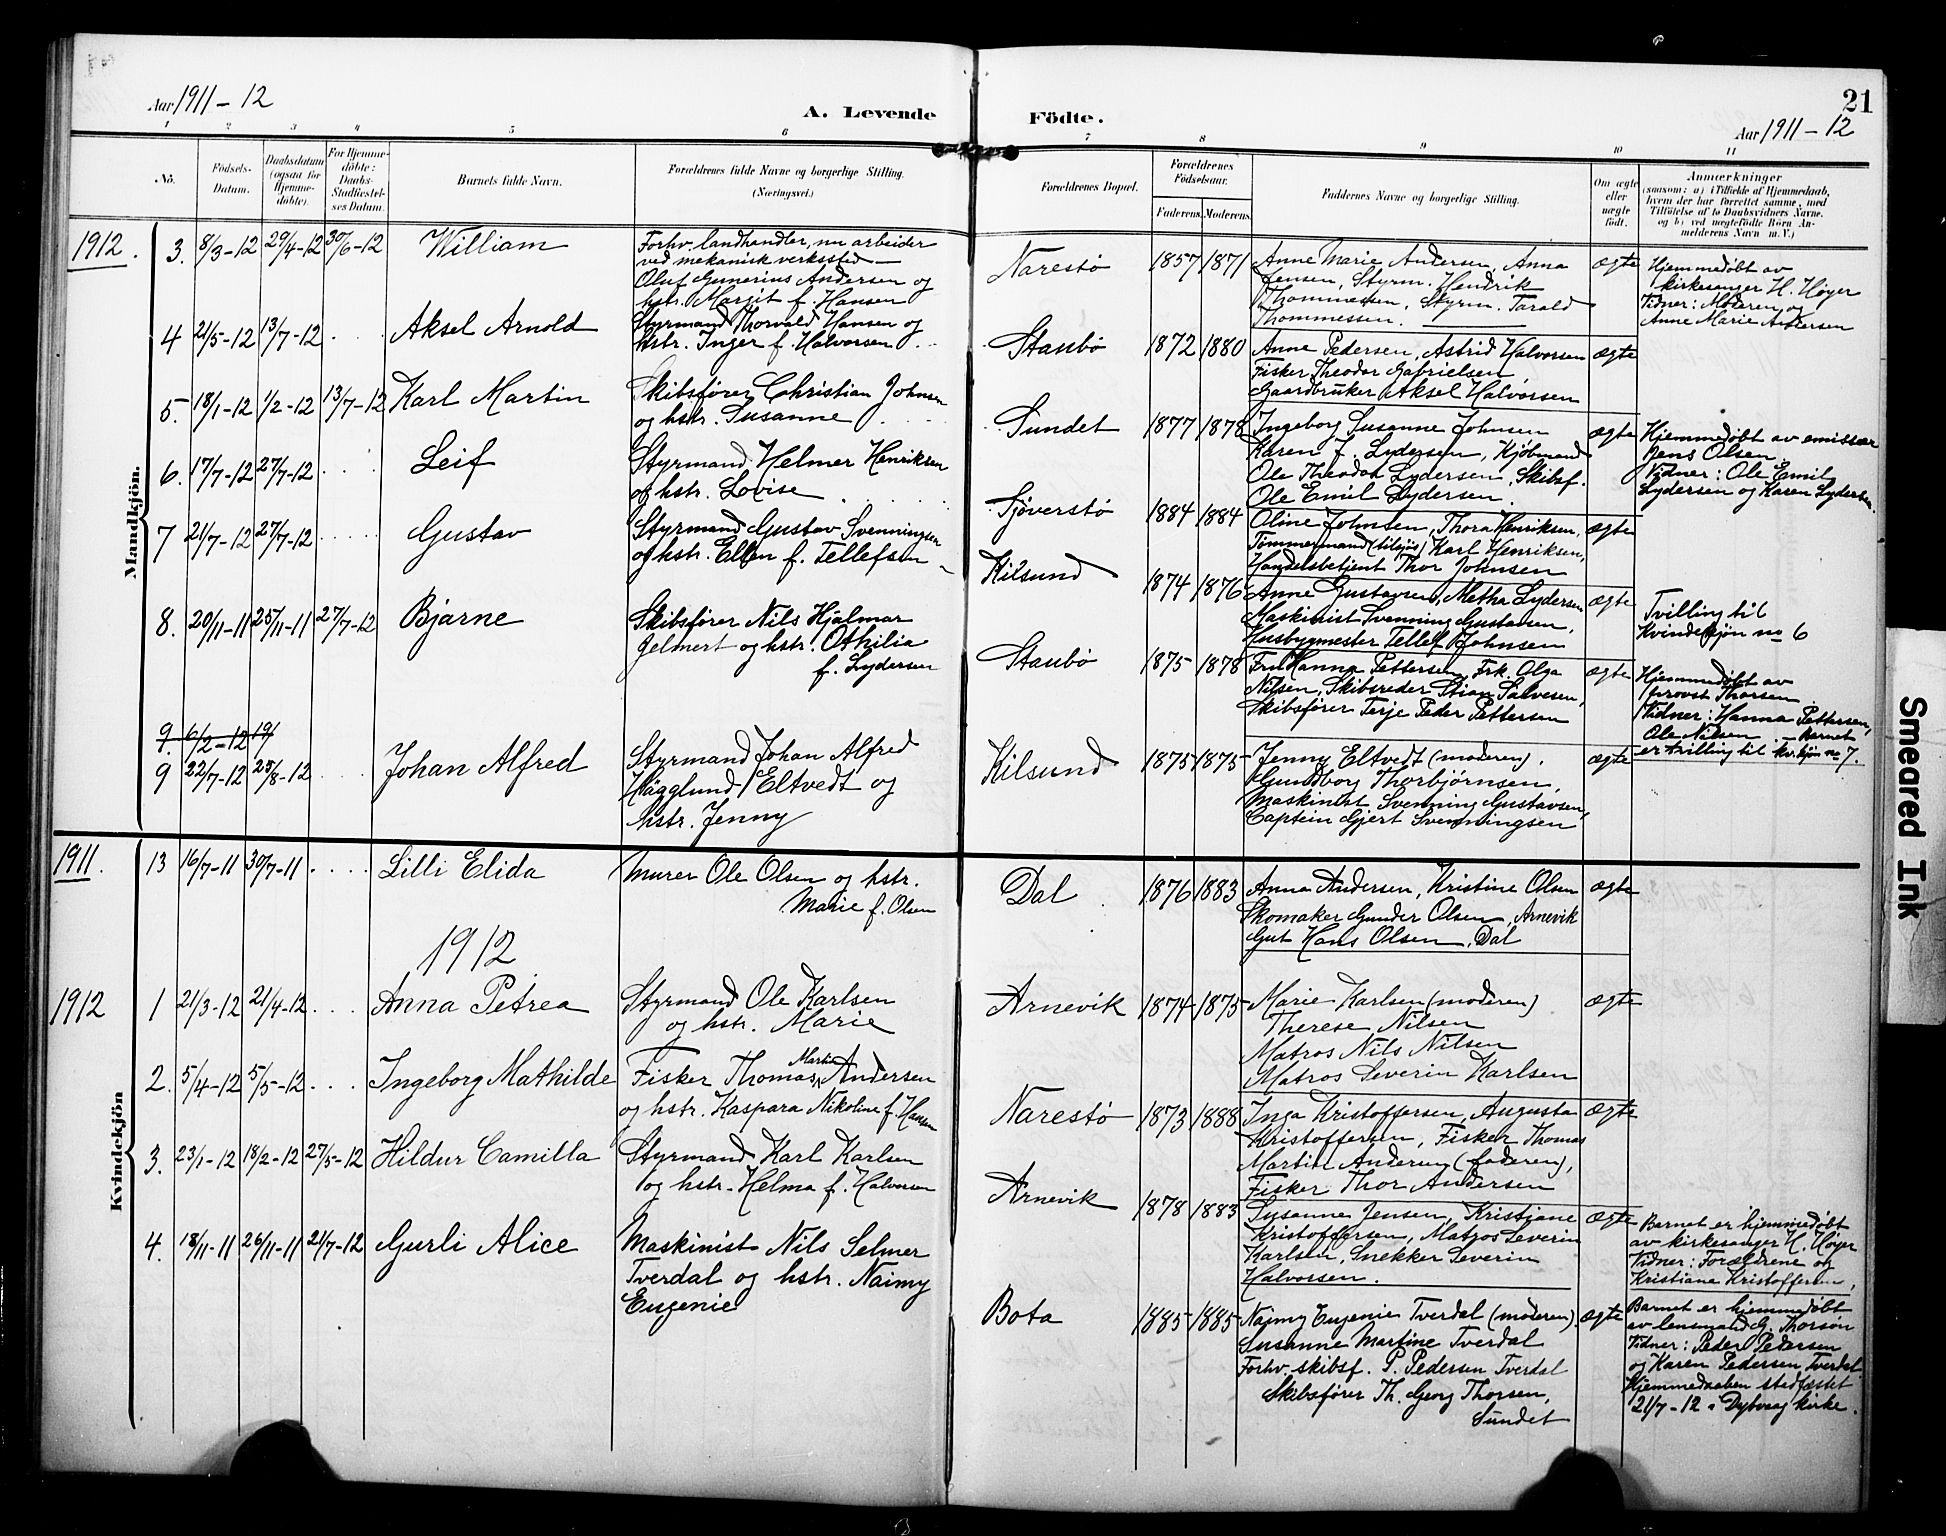 21
Aar 1911 - 12
A. Levende Födte.
Aar 1911 - 12
1 2 3 4 5 6 7 8 9 10 11
No.
Födsels-Datum.
Daabsdatum (ogsaa for Hjemmedöbte).
For Hjemmedöbte: Daabs-Stadfæstelses Datum.
Barnets fulde Navn.
Forældrenes fulde Navne og borgerlige Stilling. (Næringsvei.)
Forældrenes Bopæl.
Forældrenes Födselsaar.
Faderens. Moderens.
Faddernes Navne og borgerlige Stilling.
Om ægte eller uægte födt.
Anmærkninger
(saasom: a) i Tilfælde af Hjemmedaab, hvem der har forrettet samme, med Tilföielse af to Daabsvidners Navne, og b) ved uægtefödte Börn Anmelderens Navn m. V.)
Mandkjön.
1912. 3. 8/3-12 29/4-12 30/6-12 William
Forhv. landhandler, nu arbeider
ved mekanisk verksted
Oluf Gunerius Andersen og
hstr. Margit f. Hansen
Narestø 1857 1871
Anne Marie Andersen, Anna
Jensen, Styrm. Hendrik
Thommessen, Styrm. Tarald
Thommessen.
ægte
Hjemmedøbt av
kirkesanger H. Høyer
Vidner: Moderen og
Anne Marie Andersen
4 21/5-12 13/7-12 Aksel Arnold
Styrmand Thorvald Hansen og
hstr. Inger f. Halvorsen
Staubø 1872 1880
Anne Pedersen, Astrid Halvorsen
Fisker Theodor Gabrielsen,
Gaardbruker Aksel Halvorsen
ægte
5. 18/1-12 1/2-12 13/7-12 Karl Martin
Skibsfører Christian Johnsen
og hstr. Susanne
Sundet 1877 1878
Ingeborg Susanne Johnsen
Karen J. Lydersen, Kjøbmand
Ole Theodor Lydersen, Skibsf.
Ole Emil Lydersen.
ægte
Hjemmedøbt av emissær
Jens Olsen
Vidner: Ole Emil
Lydersen og Karen Lydersen.
6. 17/7-12 27/7-12 Leif
Styrmand Helmer Henriksen
og hstr. Lovise
Sjøverstø 1884 1884
Oline Johnsen, Thora Henriksen,
Tømmermand (tilsjøs) Karl Henriksen,
Handelsbetjent Thor Johnsen
ægte
7 21/7-12 27/7-12 Gustav
Styrmand Gustav Svenningsen
og hstr. Ellen f. Tellefsen
Kilsund 1874 1876
Anne Gustavsen, Metha Lydersen
Maskinist Svenning Gustavsen,
Husbygmester Tellef Johnsen
ægte
Tvilling til
Kvindekjøn no 6
8. 20/11-11 25/11-11 27/7-12 Bjarne
Skibsfører Nils Hjalmar
Gelmert og hstr. Othilia
f. Lydersen
Staubø 1875 1878
Fru Hanna Pettersen, Frk. Olga
Nilsen, Skibsreder Stian Salvesen,
Skibsfører Terje Peder Pettersen
ægte
Hjemmedøbt av
provst Thorsen
Vidner: Hanna Pettersen,
Ole Nilsen. - Barnet
er tvilling til kv.kjøn no 7.
9. 6/2-12 19/
9 22/7-12 25/8-12 Johan Alfred
Styrmand Johan Alfred
Hägglund Eltvedt og
hstr. Jenny
Kilsund 1875 1875
Jenny Eltvedt (moderen),
Gundborg Thorbjørnsen,
Maskinist Svenning Gustavsen,
Captein Gjert Svenningsen
ægte
Kvindekjön
1911. 13 16/7-11 30/7-11 Lilli Elida
Murer Ole Olsen og hstr.
Marie f. Olsen
Dal 1876 1883
Anna Andersen, Kristine Olsen
Skomaker Gunder Olsen, Arnevik
Gut Hans Olsen, Dal
ægte
1912
1912 1 21/3-12 21/4-12 Anna Petrea
Styrmand Ole Karlsen
og hstr. Marie
Arnevik 1874 1875
Marie Karlsen (moderen)
Therese Nilsen
Matros Nils Nilsen
Matros Severin Karlsen
ægte
2. 5/4-12 5/5-12 Ingeborg Mathilde
Fisker Thomas Martin Andersen
og hstr. Kaspara Nikoline f. Hansen
Narestø 1873 1888
Inga Kristoffersen, Augusta
Kristoffersen, Fisker Thomas
Martin Andersen (faderen),
Fisker Thor Andersen
ægte
3. 23/1-12 18/2-12 27/5-12 Hildur Camilla
Styrmand Karl Karlsen
og hstr. Helma f. Halvorsen
Arnevik 1878 1883
Susanne Jensen, Kristiane
Kristoffersen, Matros Severin
Karlsen, Snekker Severin
Halvorsen.
ægte
Barnet er hjemmedøbt
av kirkesanger H. Høyer
Vidner: Forældrene og
Kristiane Kristoffersen,
4. 18/11-11 26/11-11 21/7-12 Gurli Alice
Maskinist Nils Selmer
Tverdal og hstr. Naimy
Eugenie
Bota 1885 1885
Naimy Eugenie Tverdal (moderen).
Susanne Martine Tverdal
Forhv. skibsf. P. Pedersen Tverdal
Skibsfører Th. Georg Thorsen,
Sundet
ægte
Barnet er hjemmedøbt
av lensmand G. Thorsøn
Vidner: Peder Pedersen
og Karen Pedersen Tverdal.
Hjemmedaaben stadfæstet
21/7-12 i Dybvaag kirke.
Smeared Ink